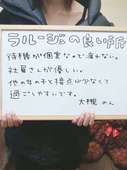 ラルージュの良い所
待機が個室なので疲れない。
社員さんが優しい。
他の女の子と接点が少なくて
過ごしやすいです。
大槻 のん